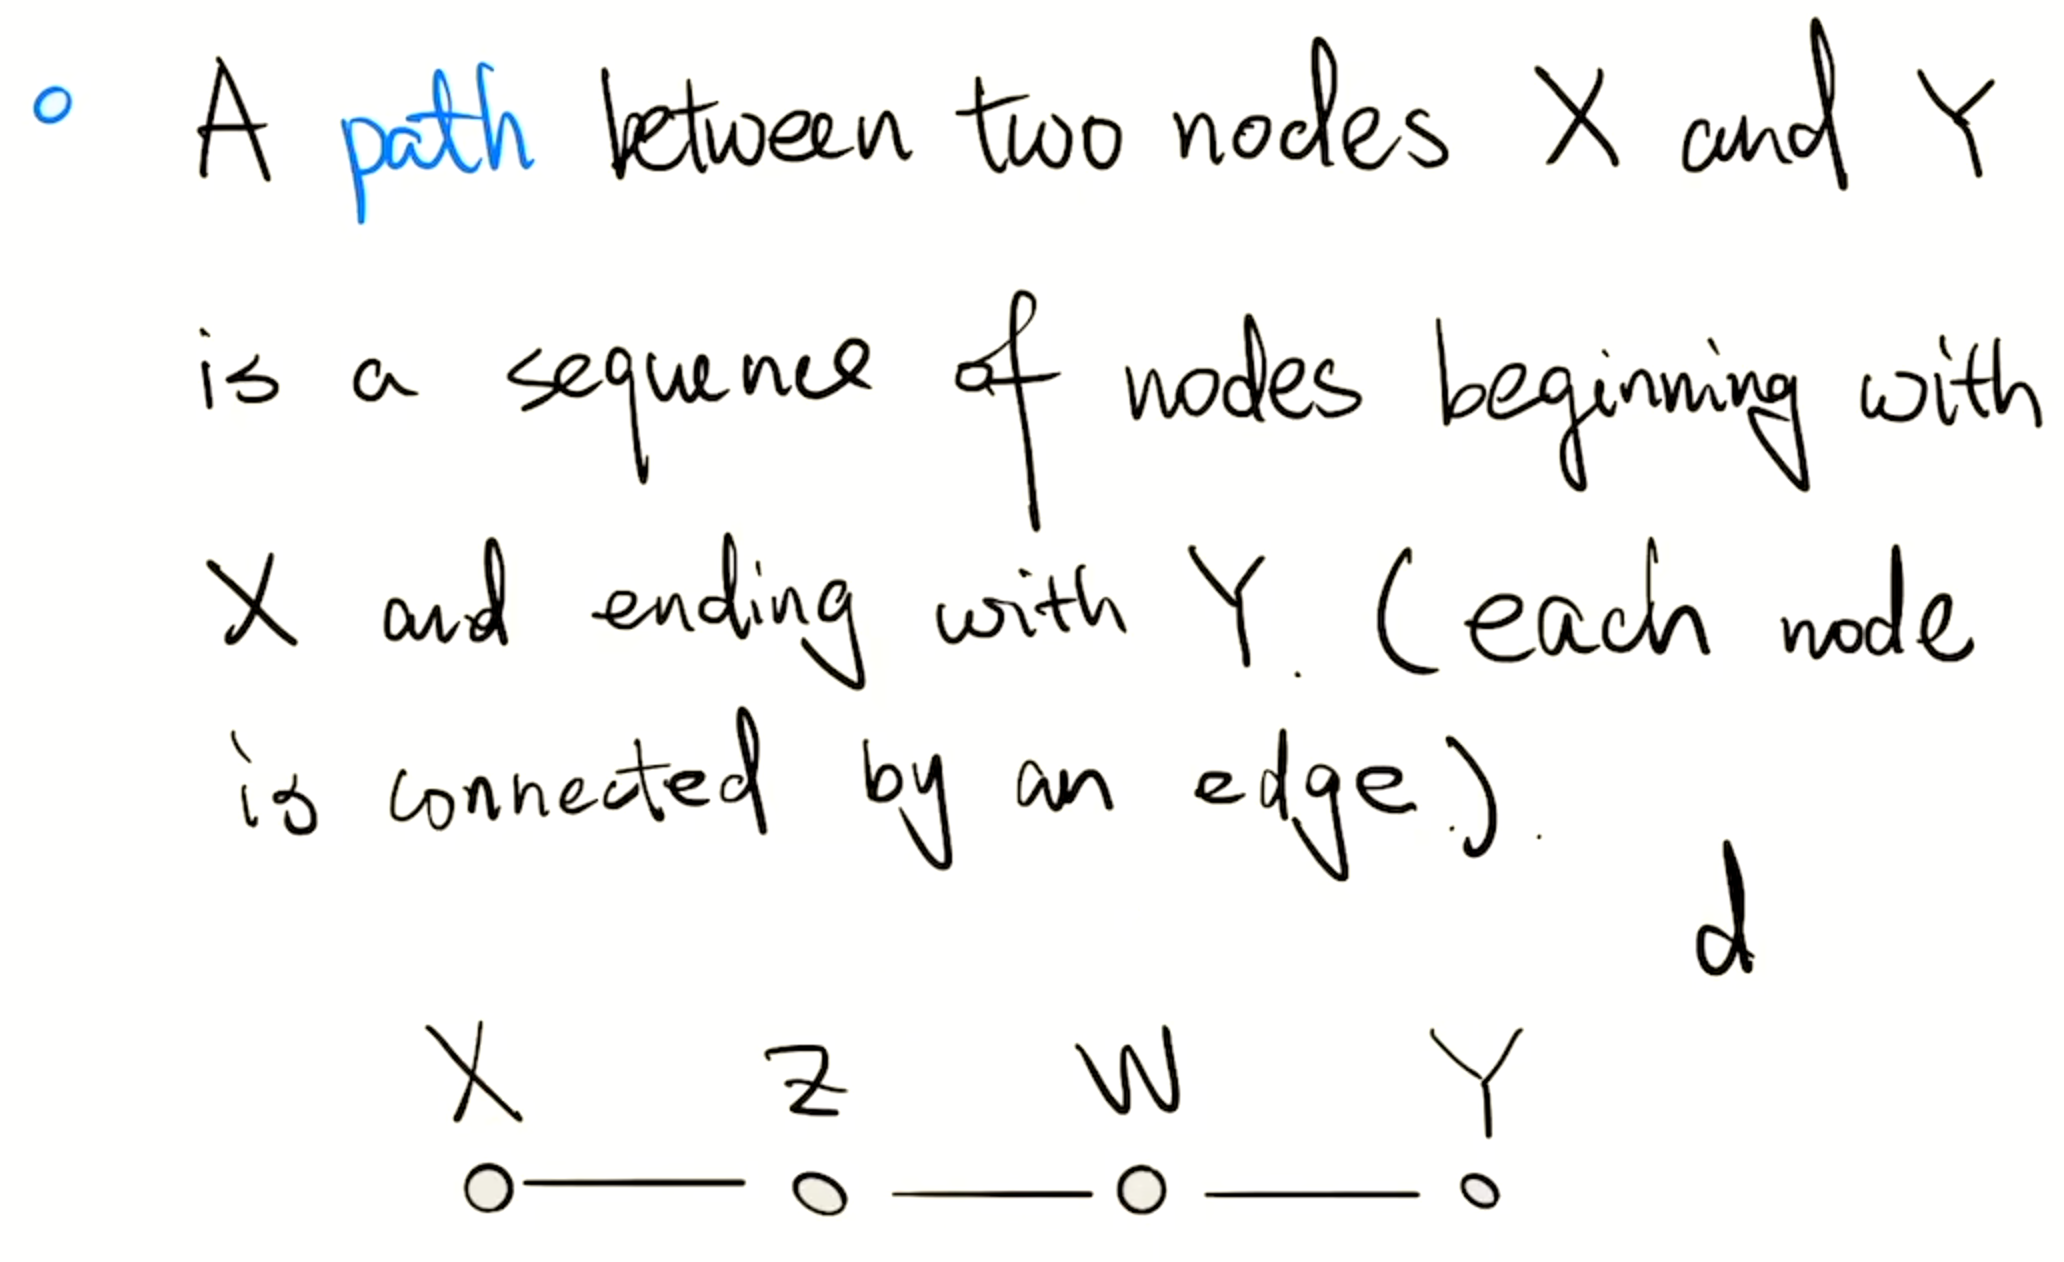 A path between two nodes X and Y
is a sequence of nodes beginning with
X and ending with Y. (each node
is connected by an edge.).
d
X Z W Y